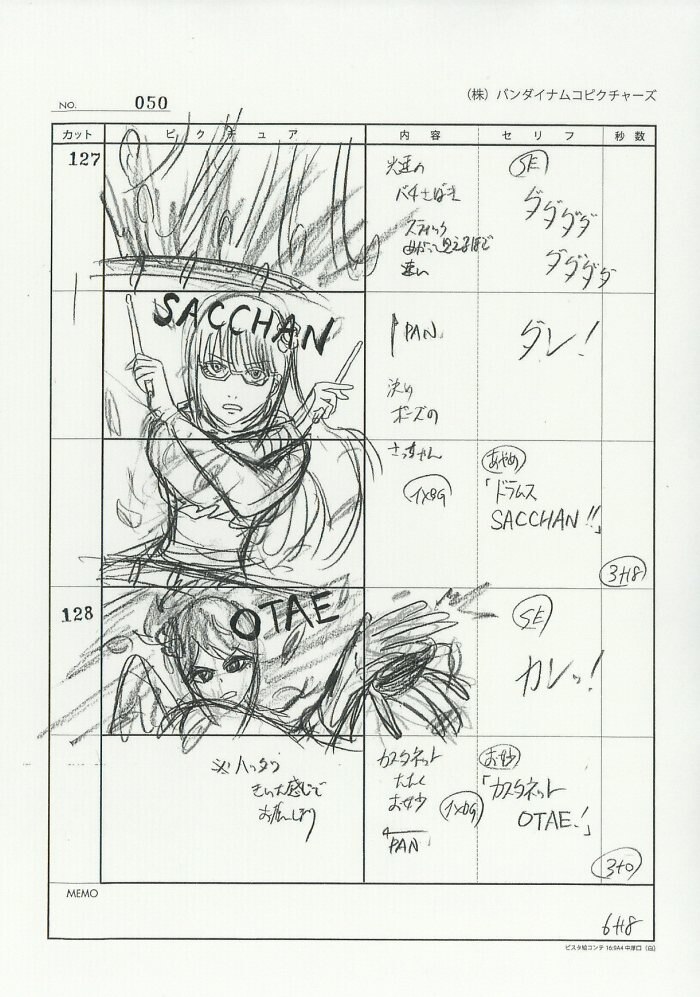 NO. 050
(株) バンダイナムコピクチャーズ
カット ピクチュア 内容 セリフ 秒数
127
光速の
バチさばき
スティック
めがこう見えるほど
速い
SE
ダダダダ
ダダダダ
SACCHAN
PAN
決め
ポーズの
さっちゃん
1×8G
ダン!
あやめ
「ドラムス
SACCHAN!!」
3+18
128
OTAE
SE
カンッ!
カスタネット
たたく
お妙
1×8G
PAN
お妙
「カスタネット
OTAE!」
3+0
※ハッタリ
きいた感じで
お願いします
MEMO
6+18
ビスタ絵コンテ 16:9A4 中厚口 (白)